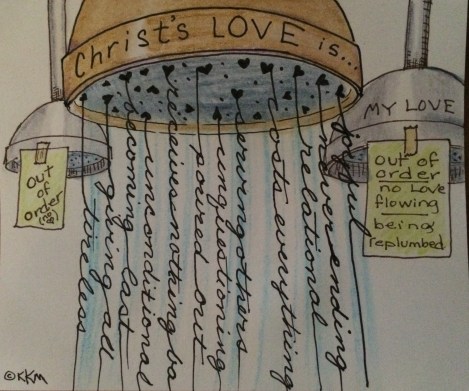 Christ's LOVE is...
MY LOVE
out of
order
no Love
flowing
being
replumbed
out
of
order
tireless
giving all
becoming last
unconditional
receives nothing ba
poured out
unquestioning
serving others
costs everything
relational
never ending
joyful
©KKM